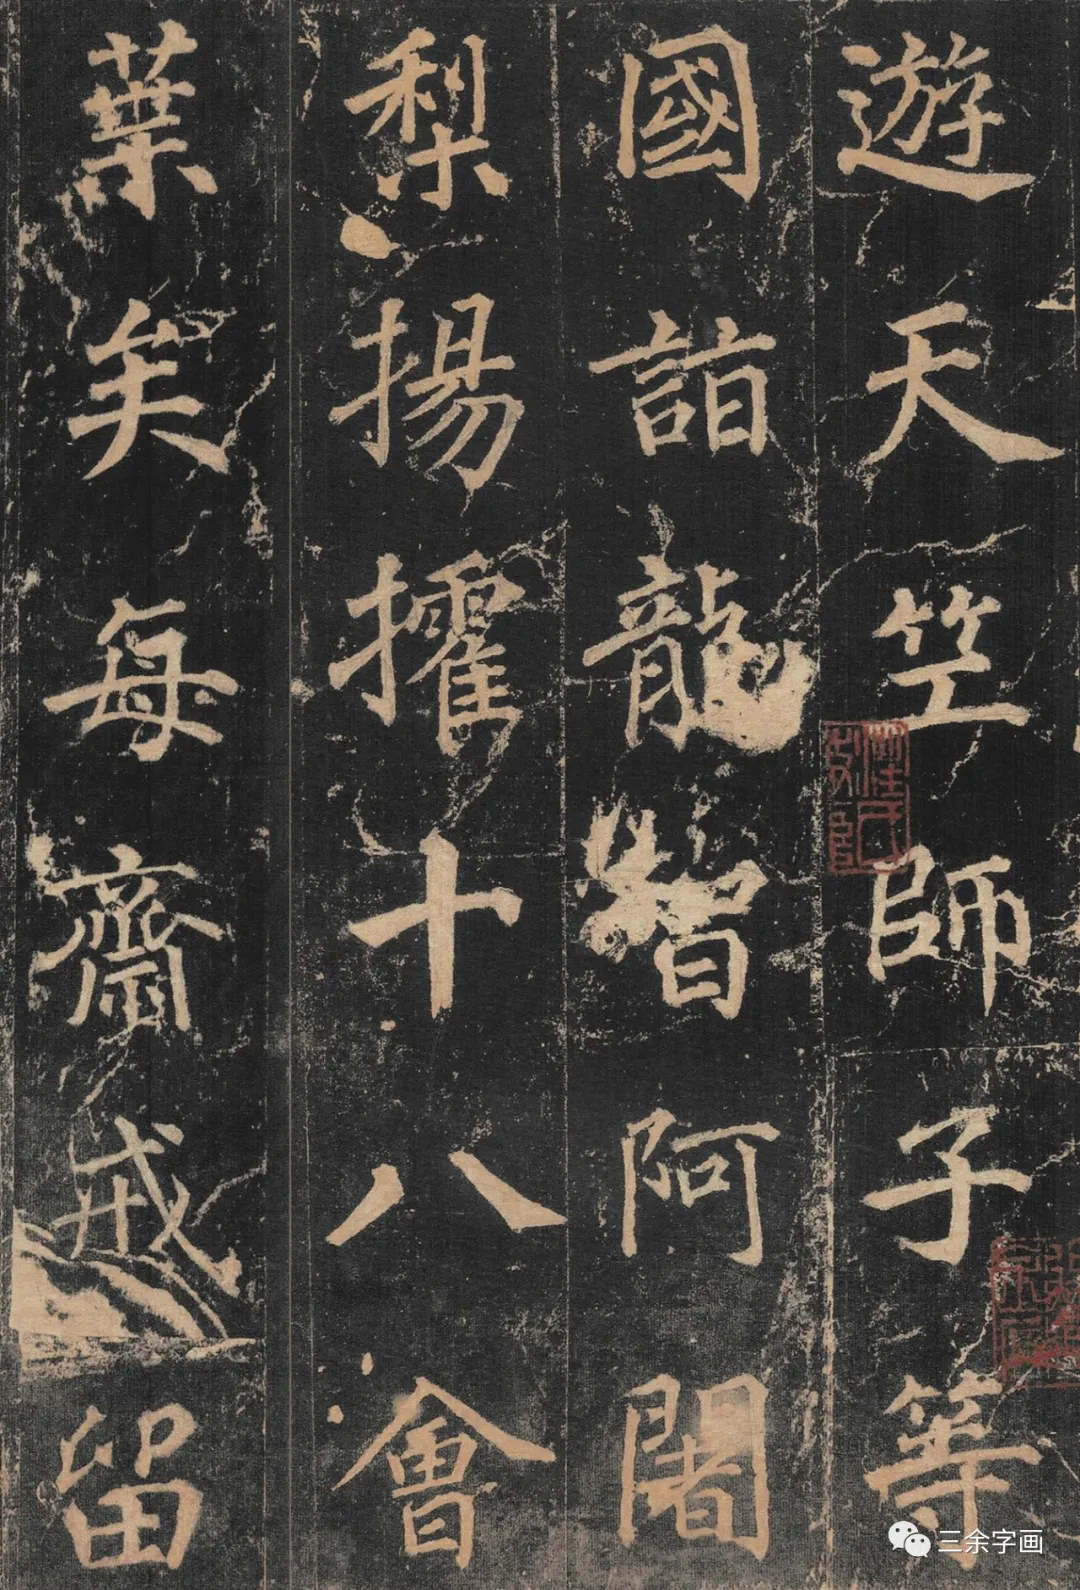 遊天竺師子等
國詣龍智阿闍
梨揚攉十八會
葉矣每齋戒留
三余字画